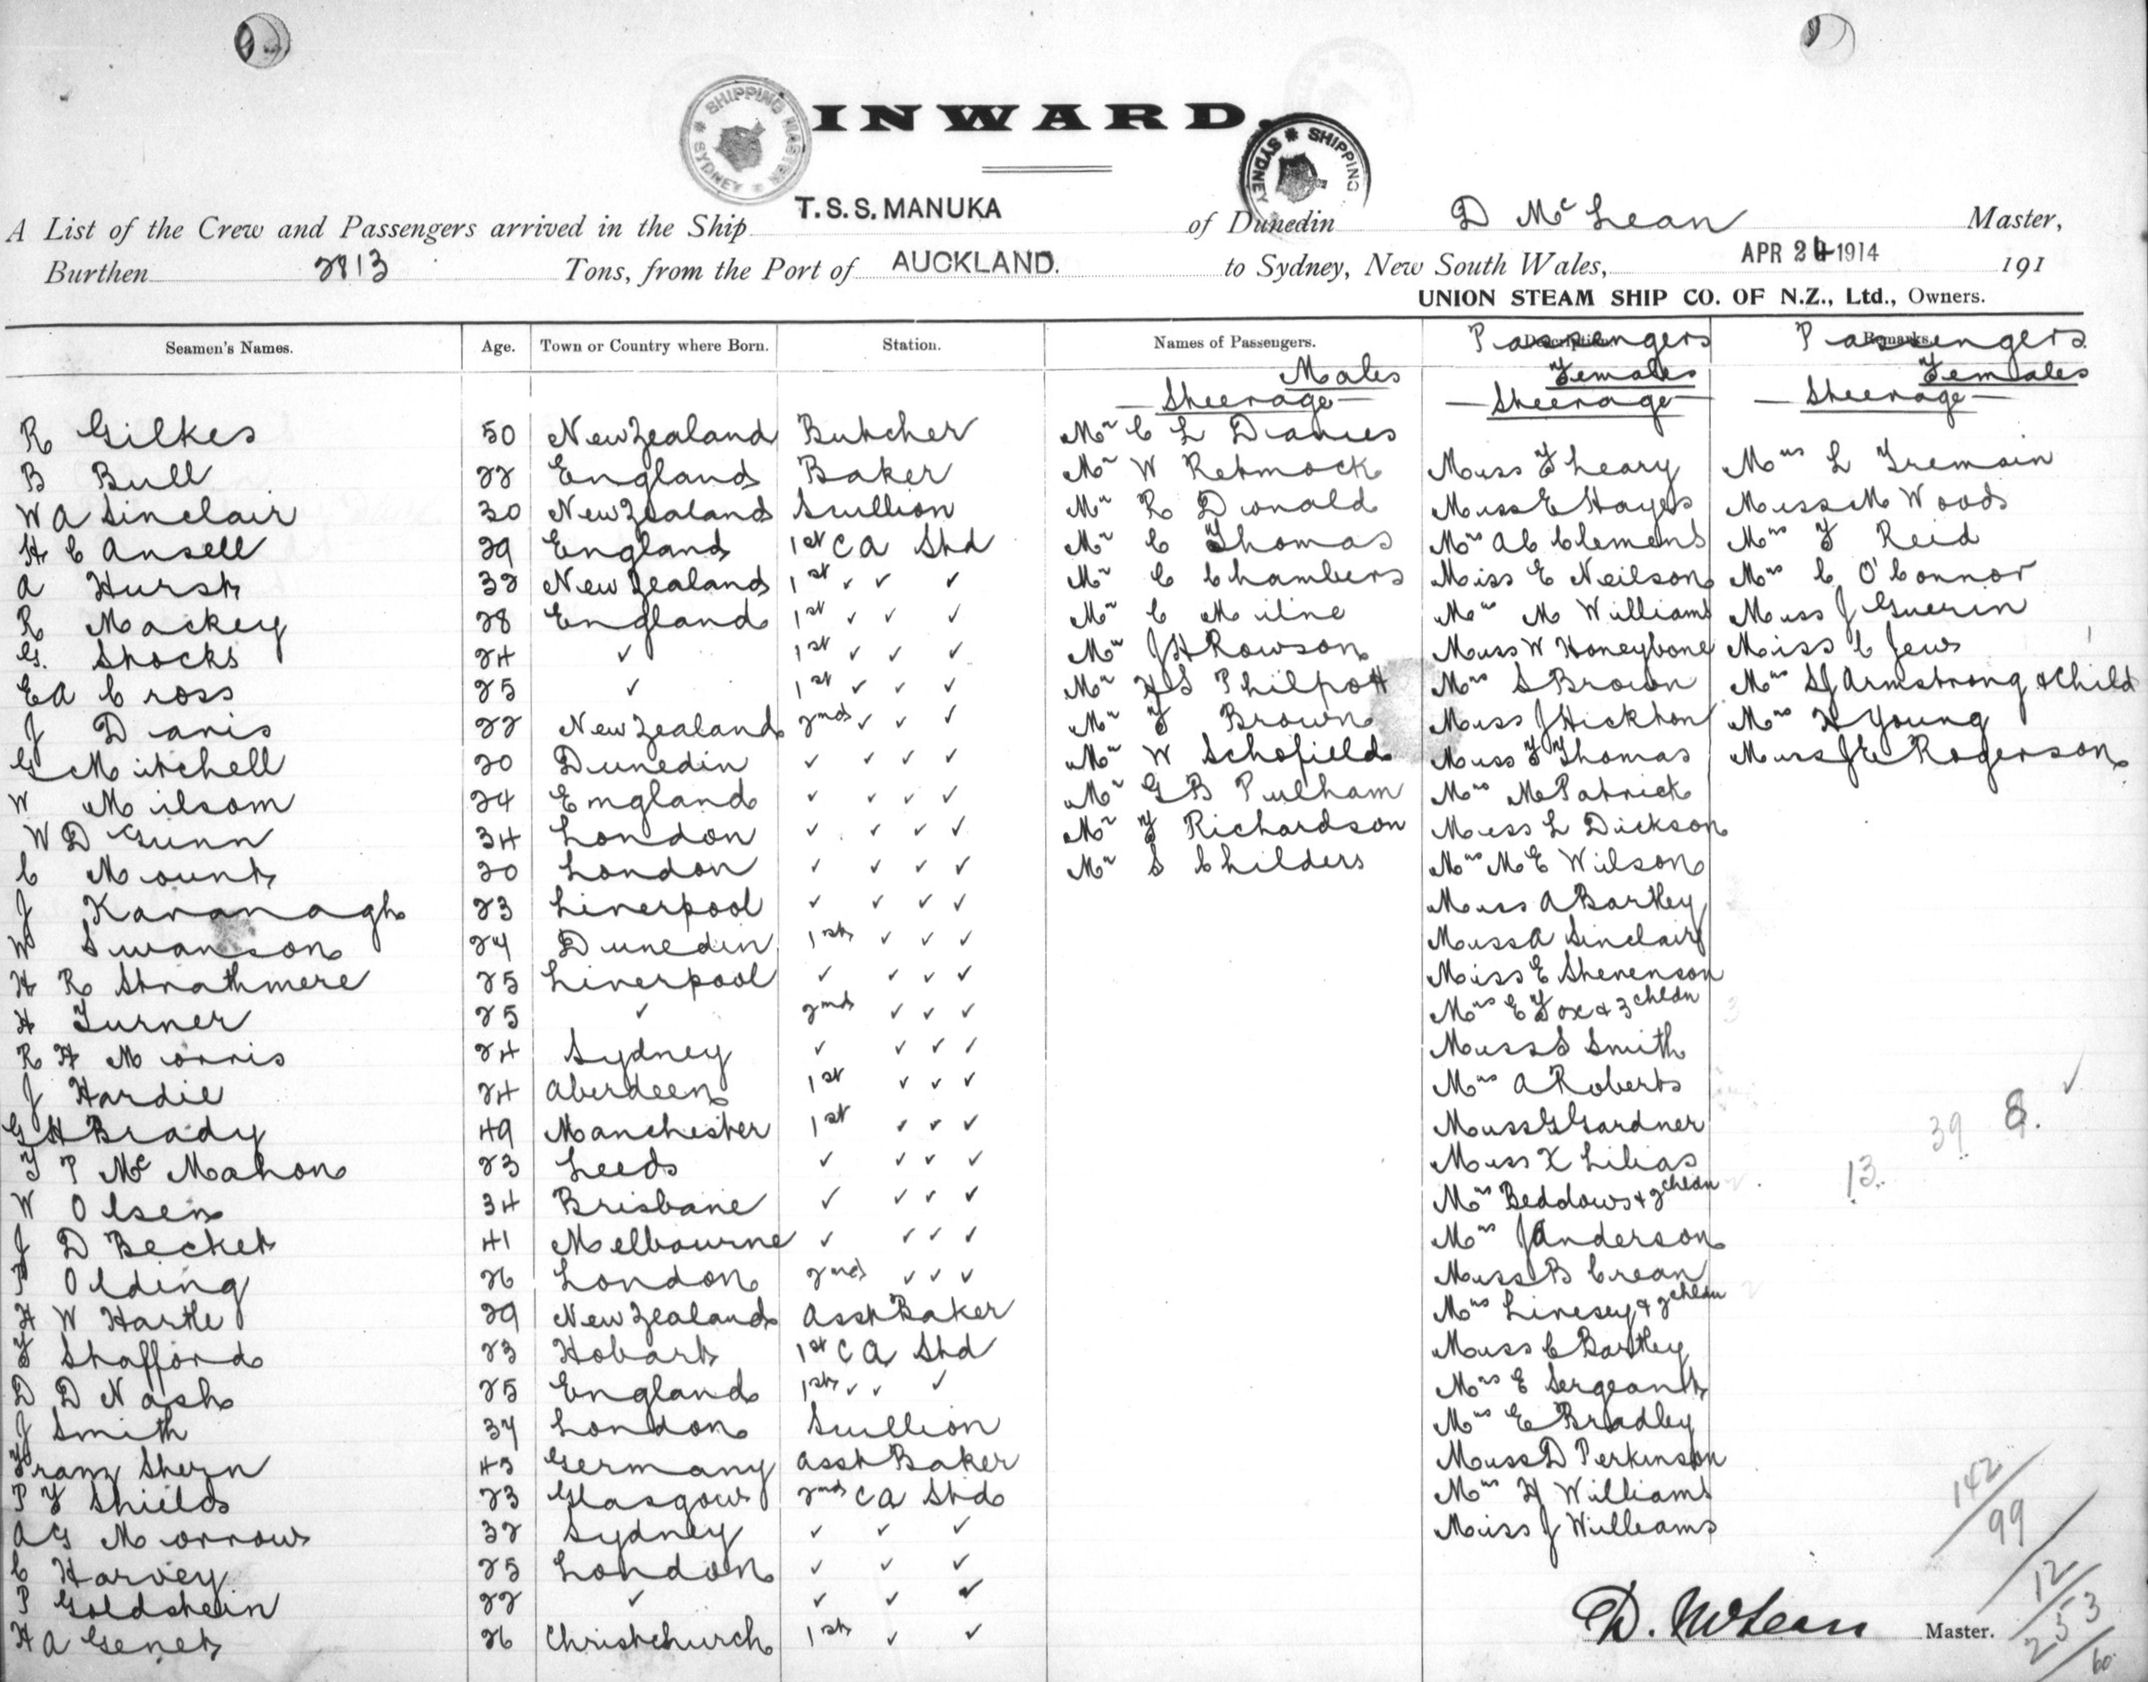 INWARD.
SHIPPING MASTER SYDNEY
SHIPPING SYDNEY
A List of the Crew and Passengers arrived in the Ship T.S.S. MANUKA of Dunedin D McLean Master,
Burthen 2813 Tons, from the Port of AUCKLAND. to Sydney, New South Wales, APR 24 1914 191
UNION STEAM SHIP CO. OF N.Z., Ltd., Owners.
Seamen's Names. Age. Town or Country where Born. Station. Names of Passengers. Passengers Passengers
Males Females Females
Steerage Steerage Steerage
R Gilkes 50 New Zealand Butcher Mr C L Davies
B Bull 22 England Baker Mr W Retmock Miss F Leary Mrs L Tremain
W A Sinclair 30 New Zealand Scullion Mr R Donald Miss E Hayes Miss M Woods
H C Ansell 29 England 1st C A Std Mr C Thomas Mrs A C Clements Mrs F Reid
A Hurst 32 New Zealand 1st ✓ ✓ ✓ Mr C Chambers Miss E Neilson Mrs C O'Connor
R Mackey 28 England 1st ✓ ✓ ✓ Mr C Milne Mrs M Williams Miss J Guerin
G. Stocks 24 ✓ 1st ✓ ✓ ✓ Mr J H Rowson Miss W Honeybone Miss C Jews
E A Cross 25 ✓ 1st ✓ ✓ ✓ Mr H S Philpott Mrs S Brown Mrs S J Armstrong & Child
J Davis 22 New Zealand 2nd ✓ ✓ ✓ Mr F Brown Miss J Hickton Mrs H Young
G Mitchell 20 Dunedin ✓ ✓ ✓ ✓ Mr W Schofield Miss F Thomas Miss J E Rogerson
W Milsom 24 England ✓ ✓ ✓ ✓ Mr G B Pulham Mrs M Patrick
W D Gunn 34 London ✓ ✓ ✓ ✓ Mr F Richardson Miss L Dickson
C Mount 20 London ✓ ✓ ✓ ✓ Mr S Childers Mrs M E Wilson
J Kavanagh 23 Liverpool ✓ ✓ ✓ ✓ Miss A Bartley
W Swanson 24 Dunedin 1st ✓ ✓ ✓ Miss A Sinclair
H R Strathmere 25 Liverpool ✓ ✓ ✓ ✓ Miss E Stevenson
H Turner 25 ✓ 2nd ✓ ✓ ✓ Mrs E Fox & 3 chldn
R H Morris 24 Sydney ✓ ✓ ✓ ✓ Miss S Smith
J Hardie 24 Aberdeen 1st ✓ ✓ ✓ Mrs A Roberts
G H Brady 49 Manchester 1st ✓ ✓ ✓ Miss G Gardner 39 8.
T P McMahon 23 Leeds ✓ ✓ ✓ ✓ Miss K Lilias 13.
W Olsen 34 Brisbane ✓ ✓ ✓ ✓ Mrs Beddows & 2 chldn
J D Becket 41 Melbourne ✓ ✓ ✓ ✓ Mrs J Anderson
P Olding 26 London 2nd ✓ ✓ ✓ Miss B Crean
H W Hartle 29 New Zealand Asst Baker Mrs Linesey & 2 chldn
F Stafford 23 Hobart 1st C A Std Miss C Bartley
D D Nash 25 England 1st ✓ ✓ ✓ Mrs E Sergeant
J Smith 37 London Scullion Mrs E Bradley
Franz Stern 43 Germany Asst Baker Miss D Perkinson
P F Shields 23 Glasgow 2nd C A Std Mrs H Williams 142
A G Morrow 32 Sydney ✓ ✓ ✓ Miss J Williams 99
C Harvey 25 London ✓ ✓ ✓ 12
P Goldstein 22 ✓ ✓ ✓ ✓ 253
H A Genet 26 Christchurch 1st ✓ ✓ D. McLean Master. 60